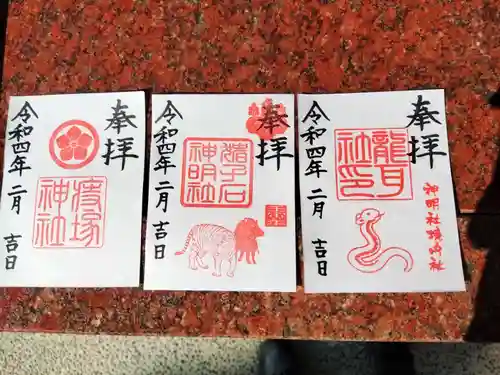 奉拝
痔塚
神社
令和四年 二月 吉日
奉拝
猪子石
神明社
令和四年 二月 吉日
奉拝
龍耳
社印
神明社境内社
令和四年 二月 吉日